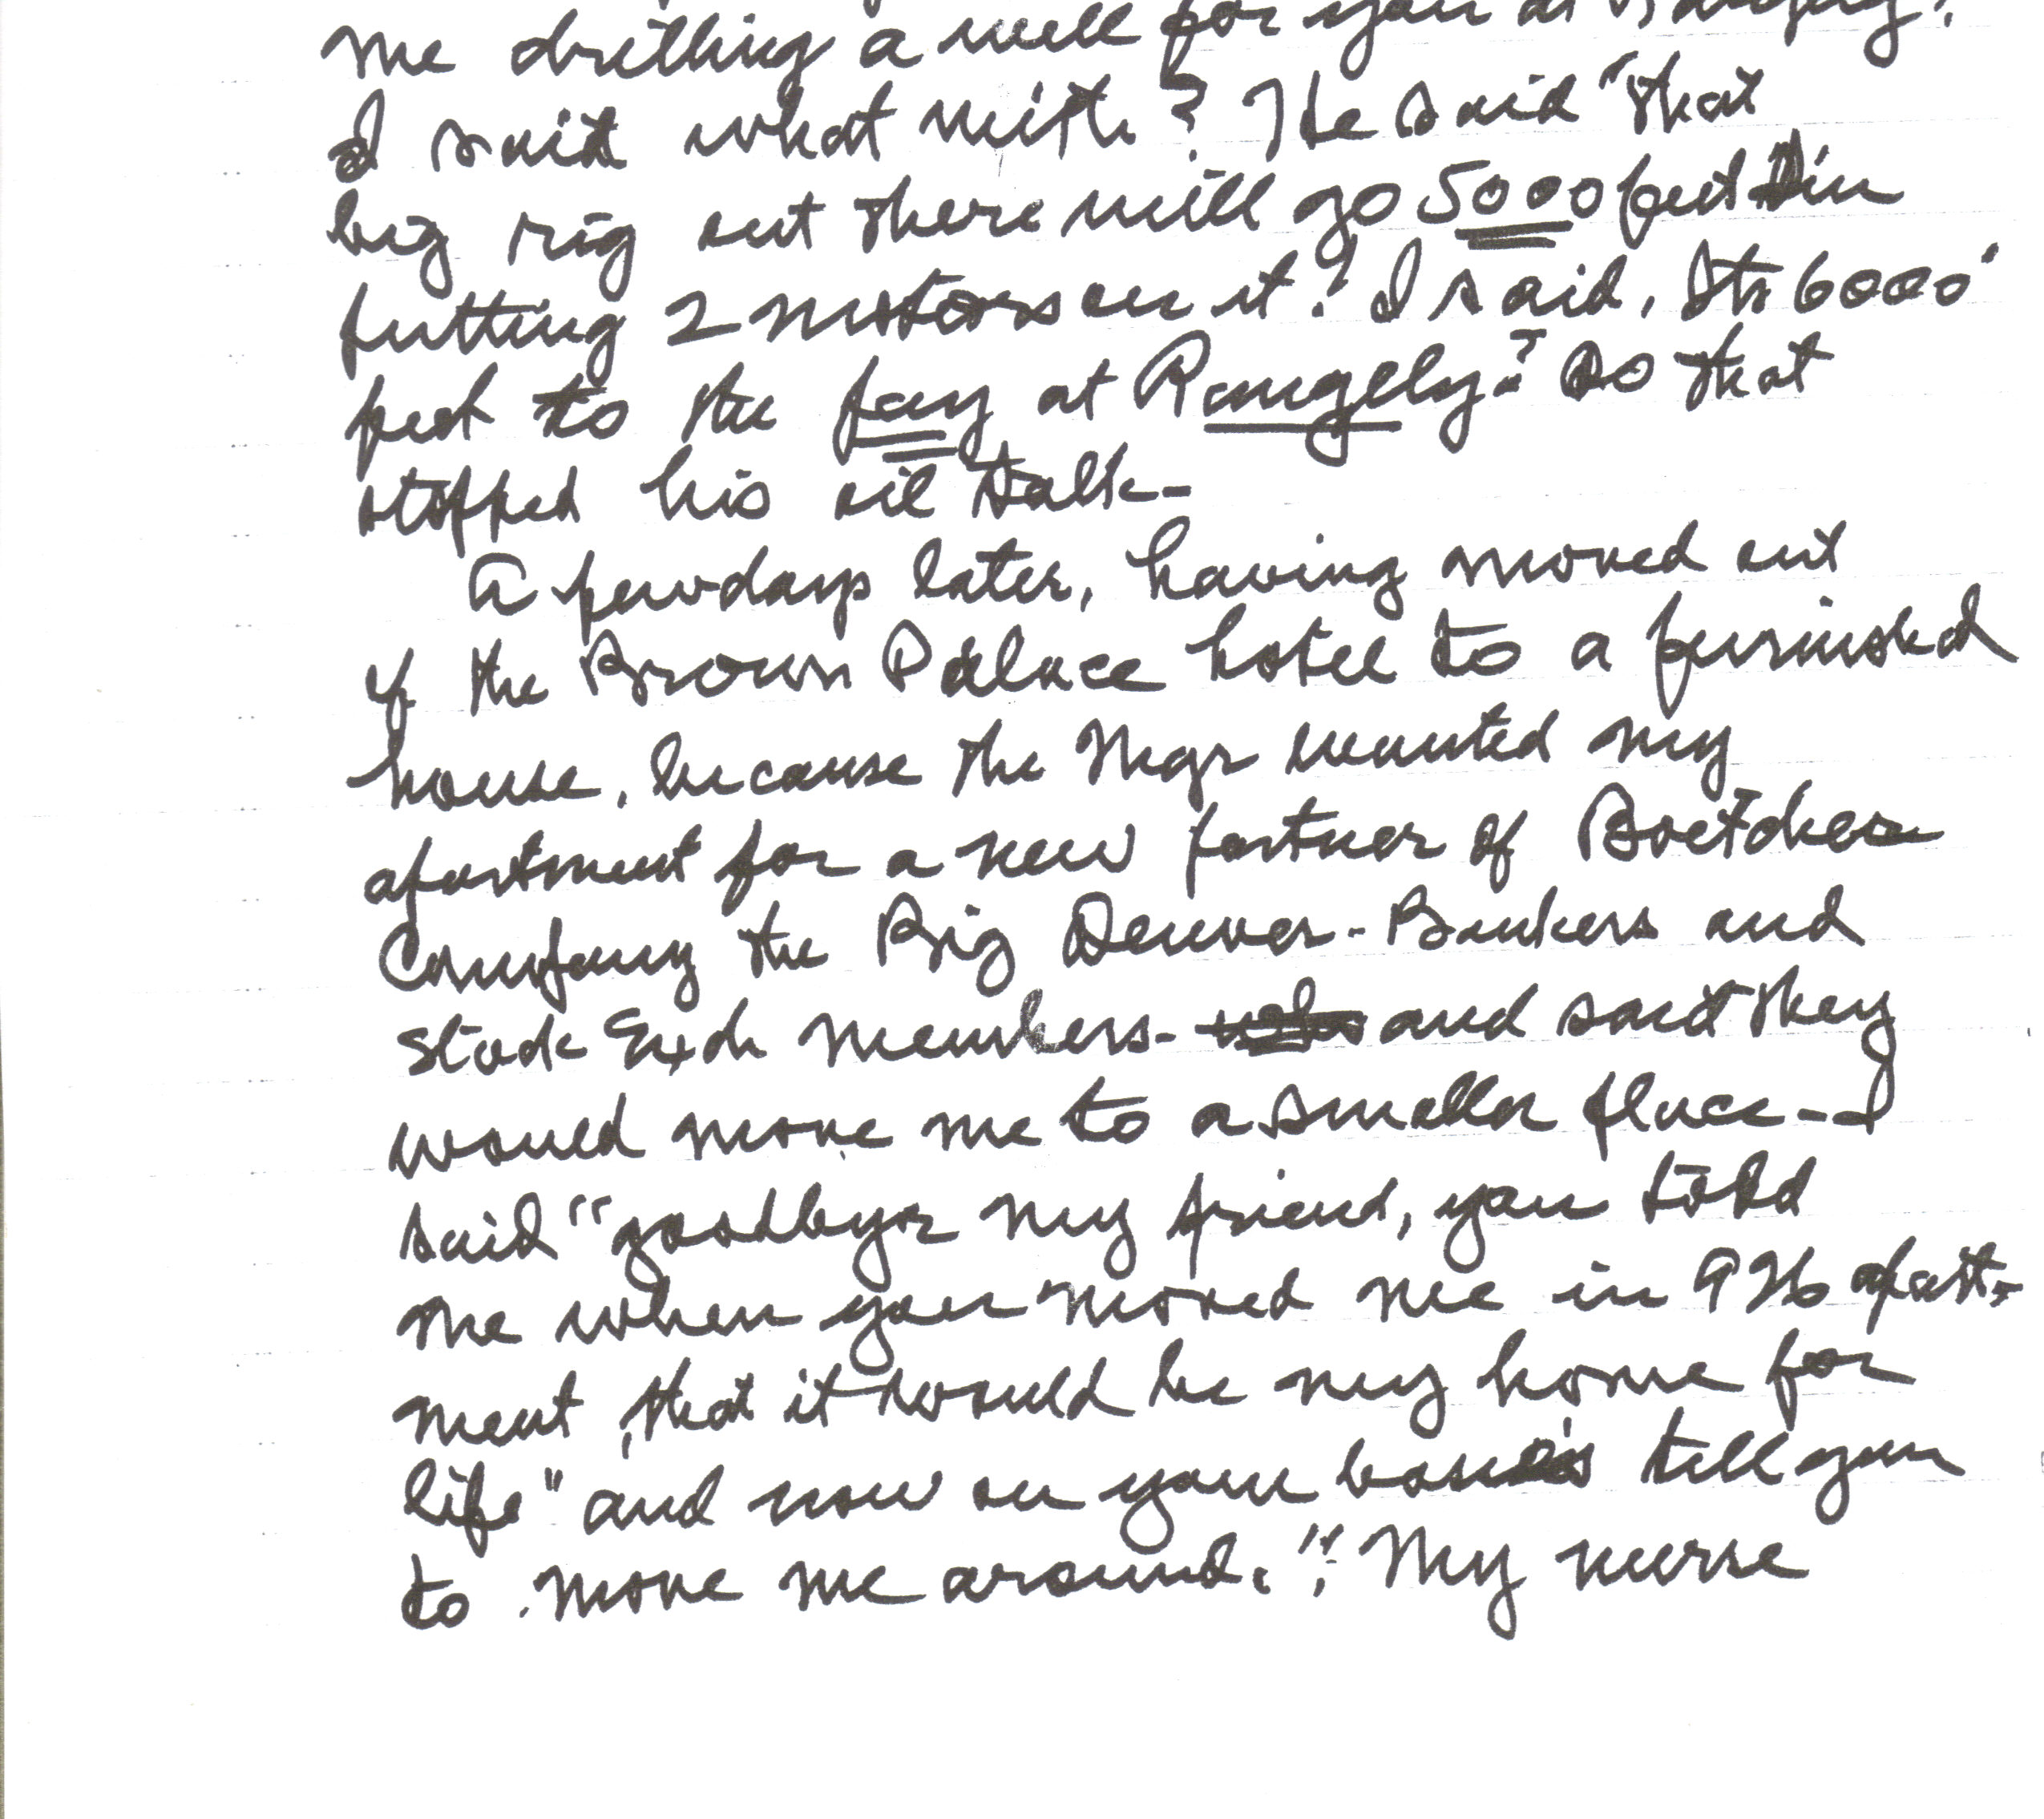 me drilling a well for you at Rangely?
I said what with? He said "that
big rig out there will go 5000 feet I'm
putting 2 motors on it! I said, Its 6000'
feet to the pay at Rangely? So that
stopped his oil talk-
A few days later, having moved out
of the Brown Palace hotel to a furnished
house, because the Mgr wanted my
apartment for a new partner of Boetcher
Company the Big Denver-Bankers and
Stock Exch members- and said they
would move me to a smaller place-I
said "goodbye my friend, you told
me when you moved me in 926 apart-
ment, that it would be my home for
life" and now on your bosses tell you
to move me around." My nurse